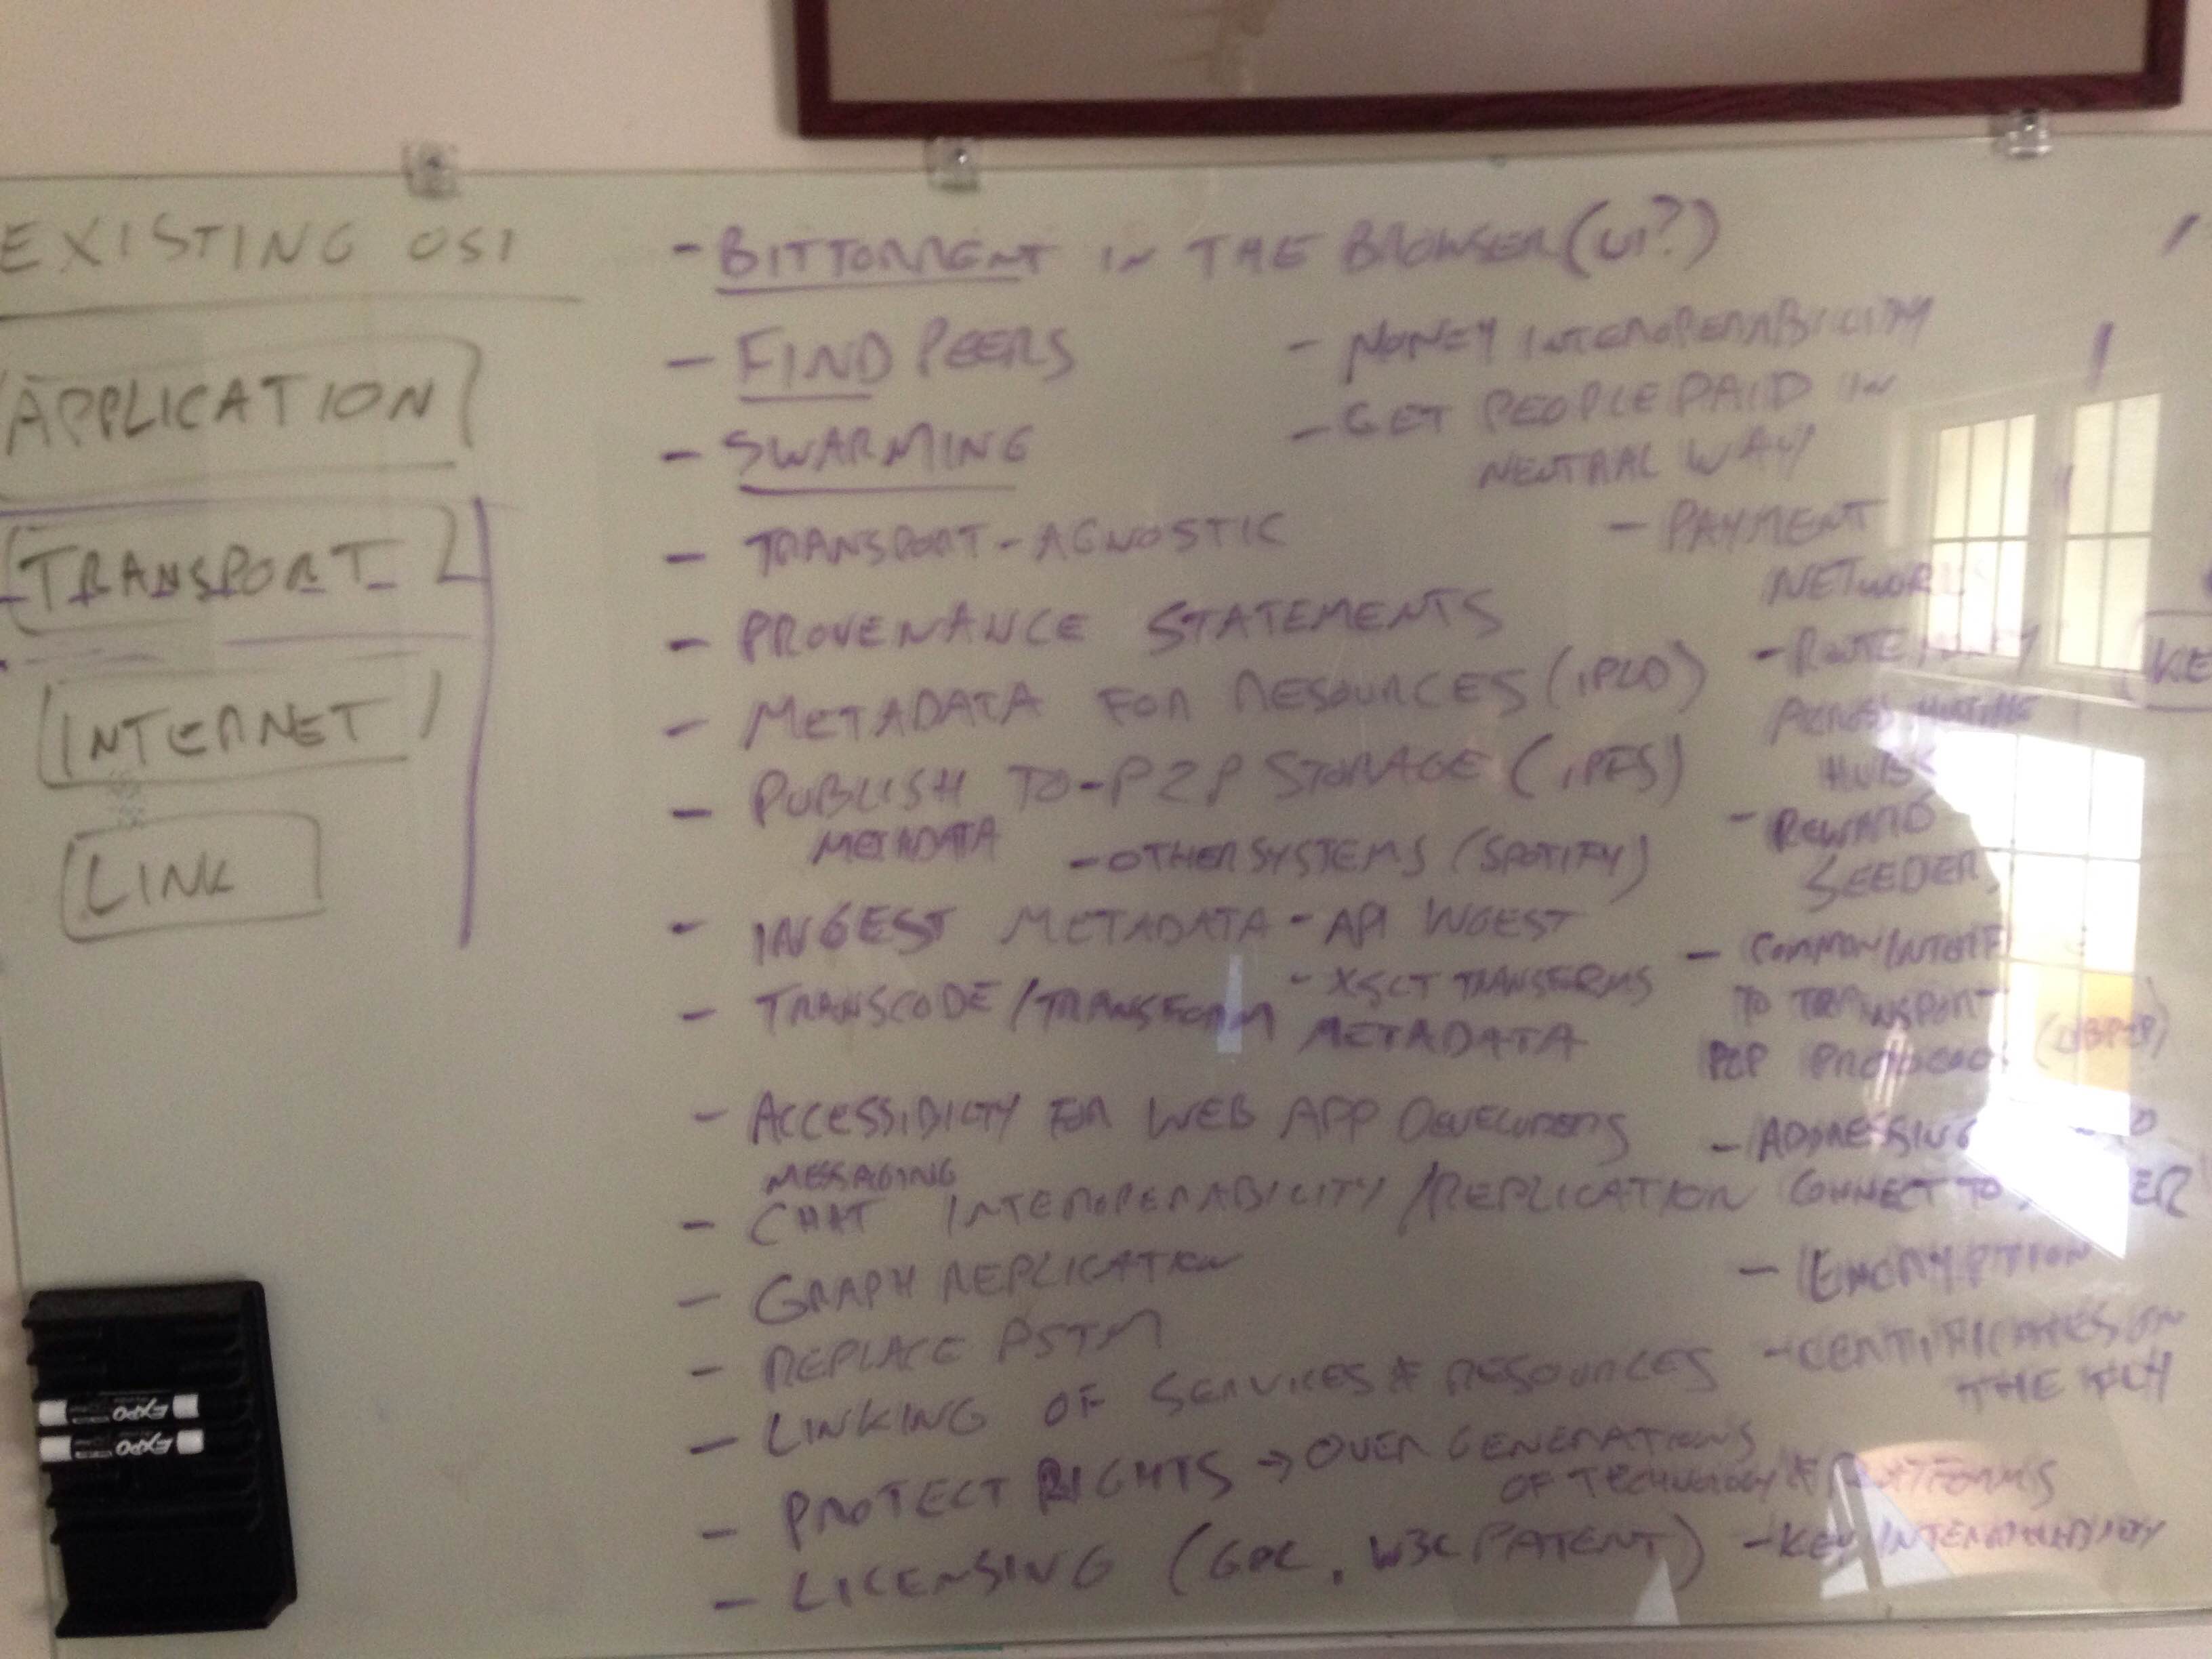 EXISTING OSI
APPLICATION
TRANSPORT
INTERNET
LINK
- BITTORRENT IN THE BROWSER (UI?)
- FIND PEERS
- SWARMING
- TRANSPORT-AGNOSTIC
- PROVENANCE STATEMENTS
- METADATA FOR RESOURCES (IPLD)
- PUBLISH TO-P2P STORAGE (IPFS)
METADATA
- OTHER SYSTEMS (SPOTIFY)
- INGEST METADATA - API INGEST
- TRANSCODE/TRANSFORM - XSLT TRANSFORMS
METADATA
- ACCESSIBILITY FOR WEB APP DEVELOPERS
MESSAGING
- CHAT INTEROPERABILITY/REPLICATION
- GRAPH REPLICATION
- REPLACE PSTN
- LINKING OF SERVICES & RESOURCES
- PROTECT RIGHTS → OVER GENERATIONS
OF TECHNOLOGY & PLATFORMS
- LICENSING (GPL, W3C PATENT)
- MONEY INTEROPERABILITY
- GET PEOPLE PAID IN
NEUTRAL WAY
- PAYMENT
NETWORK
- ROUTE
ACROSS MULTIPLE
HUBS
- REWARD
SEEDERS
- COMMON
TO TRANSPORT
P2P PROTOCOL
- ADDRESSING
CONNECT TO
- ENCRYPTION
- CERTIFICATES ON
THE FLY
- KEY INTEROPERABILITY
KE
EXPO
EXPO